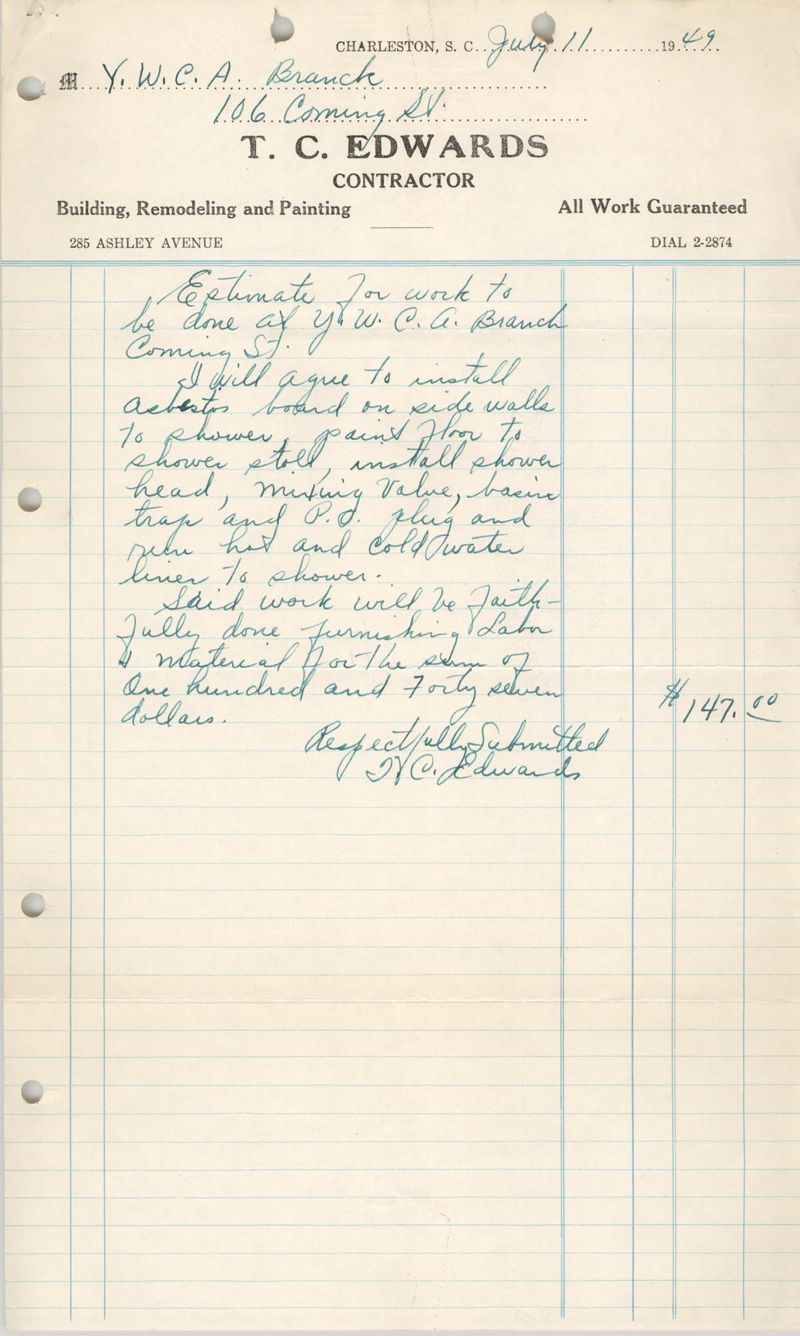 CHARLESTON, S. C. July 11 1949
M Y. W. C. A. Branch
106 Coming St.
T. C. EDWARDS
CONTRACTOR
Building, Remodeling and Painting All Work Guaranteed
285 ASHLEY AVENUE DIAL 2-2874
Estimate for work to
be done at Y. W. C. A. Branch
Coming St.
I will agree to install
asbestos board on side walls
to shower, paint floor to
shower stall, install shower
head, mixing valve, basin
trap and P.O. plug and
run hot and cold water
lines to shower.
Said work will be faith-
fully done furnishing Labor
& material for the sum of
One hundred and Forty seven
dollars. $147.00
Respectfully Submitted
T. C. Edwards